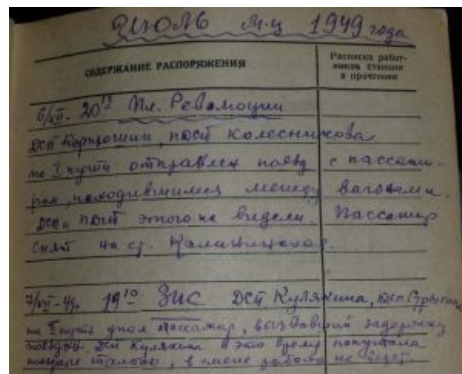 ИЮЛЬ м-ц 1949 года
СОДЕРЖАНИЕ РАСПОРЯЖЕНИЯ
Расписка работ-
ников станции
в прочтении
6/VII - 20 Пл. Революции
ДСП Корюшин, ПДСП Колесникова
по I пути отправлен поезд с пассажи-
ром, находившимся между вагонами.
ДСП и ПДСП этого не видели. Пассажир
снят на ст.
7/VII-49. 19 10 ЗИС ДСП Кулякина,
на II пути упал пассажир, вызвавший задержку
поездов ДСП Кулякина в это время